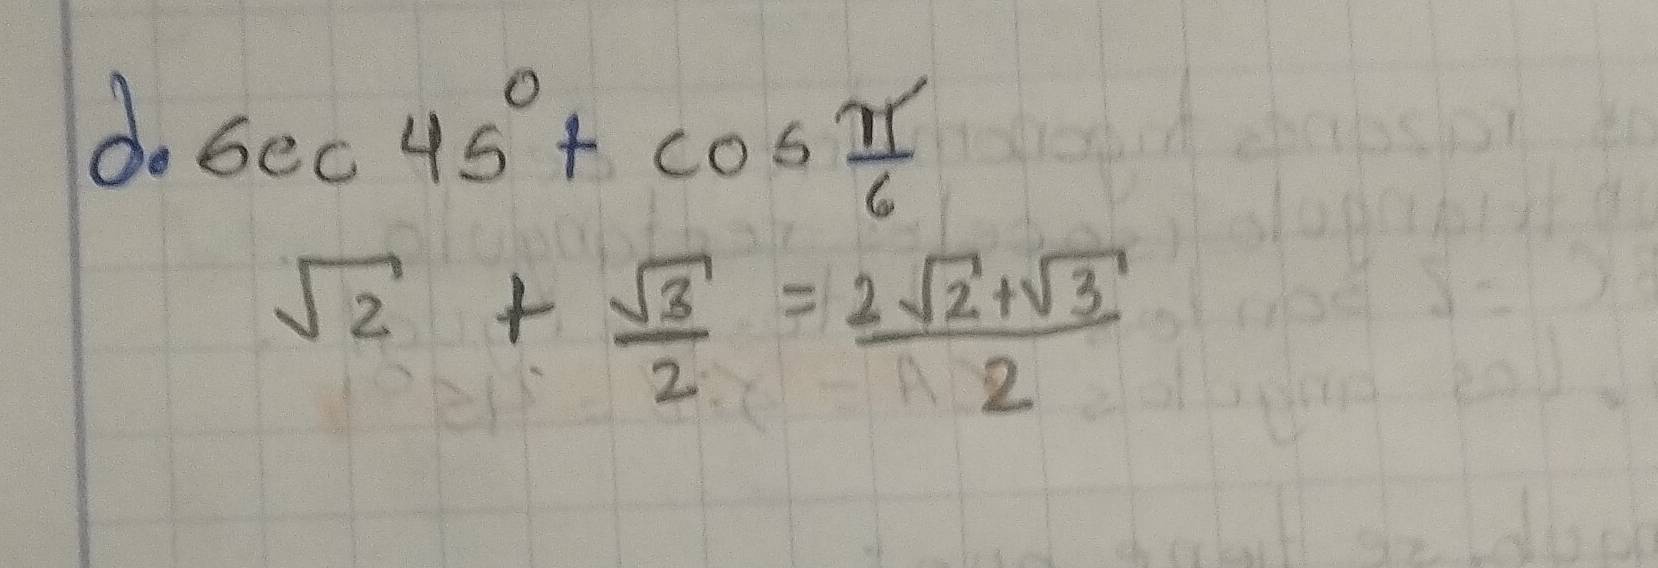 d. Sec 45° + cos π/6
√2 + √3/2 = (2√2+√3)/2